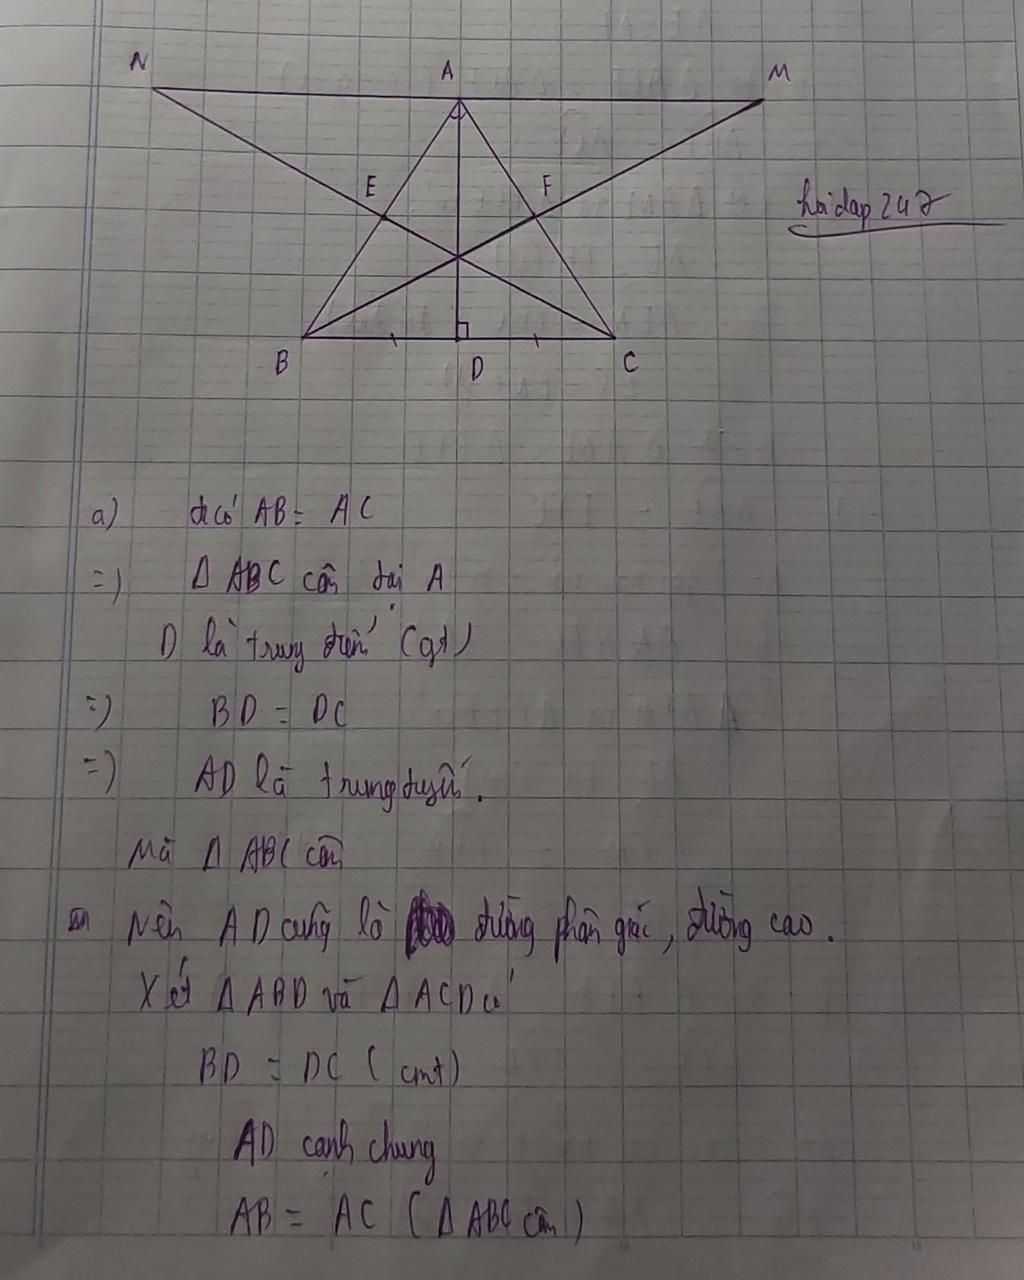 N A M
E F
hoidap247
B D C
a) ta có AB = AC
=) Δ ABC cân tại A
D là trung điểm (gt)
=) BD = DC
=) AD là trung tuyến.
Mà Δ ABC cân
Nên AD cũng là đường phân giác, đường cao.
Xét Δ ABD và Δ ACD có
BD = DC (cmt)
AD cạnh chung
AB = AC (Δ ABC cân)